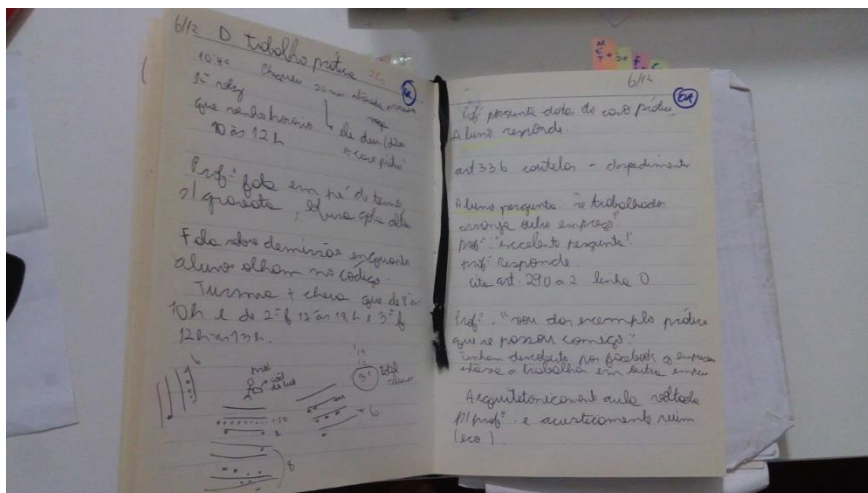 6/12 D. Trabalho prática
10:40 Cheguei 20 min atrasada
1ª vez
que venho horário
de deu (data
10 às 12h
caso prático
Profº fala em pé de terno
s/ gravata,
Fala sobre demissão enquanto
alunos olham no código.
Turma + cheia que de 8 às
10h e de 2ªf 12 às 13h e 3ªf
12h às 13h.
6
prof
total
alunos
6
8
6/12
Profº pergunta data do caso prático,
Aluno responde.
art 336 cautelar - despedimento
Aluno pergunta: "se trabalhador
arranja outro emprego"
Profº: "excelente pergunta!"
Profº responde.
cita art. 290 nº 2 linha O
Profº: "vou dar exemplo prático
que se passou comigo"
Tinham descoberto por facebook q empresa
estava a trabalhar em outra empresa
Arquitetonicament aula voltada
p/ profº e acusticamente ruim
(eco).